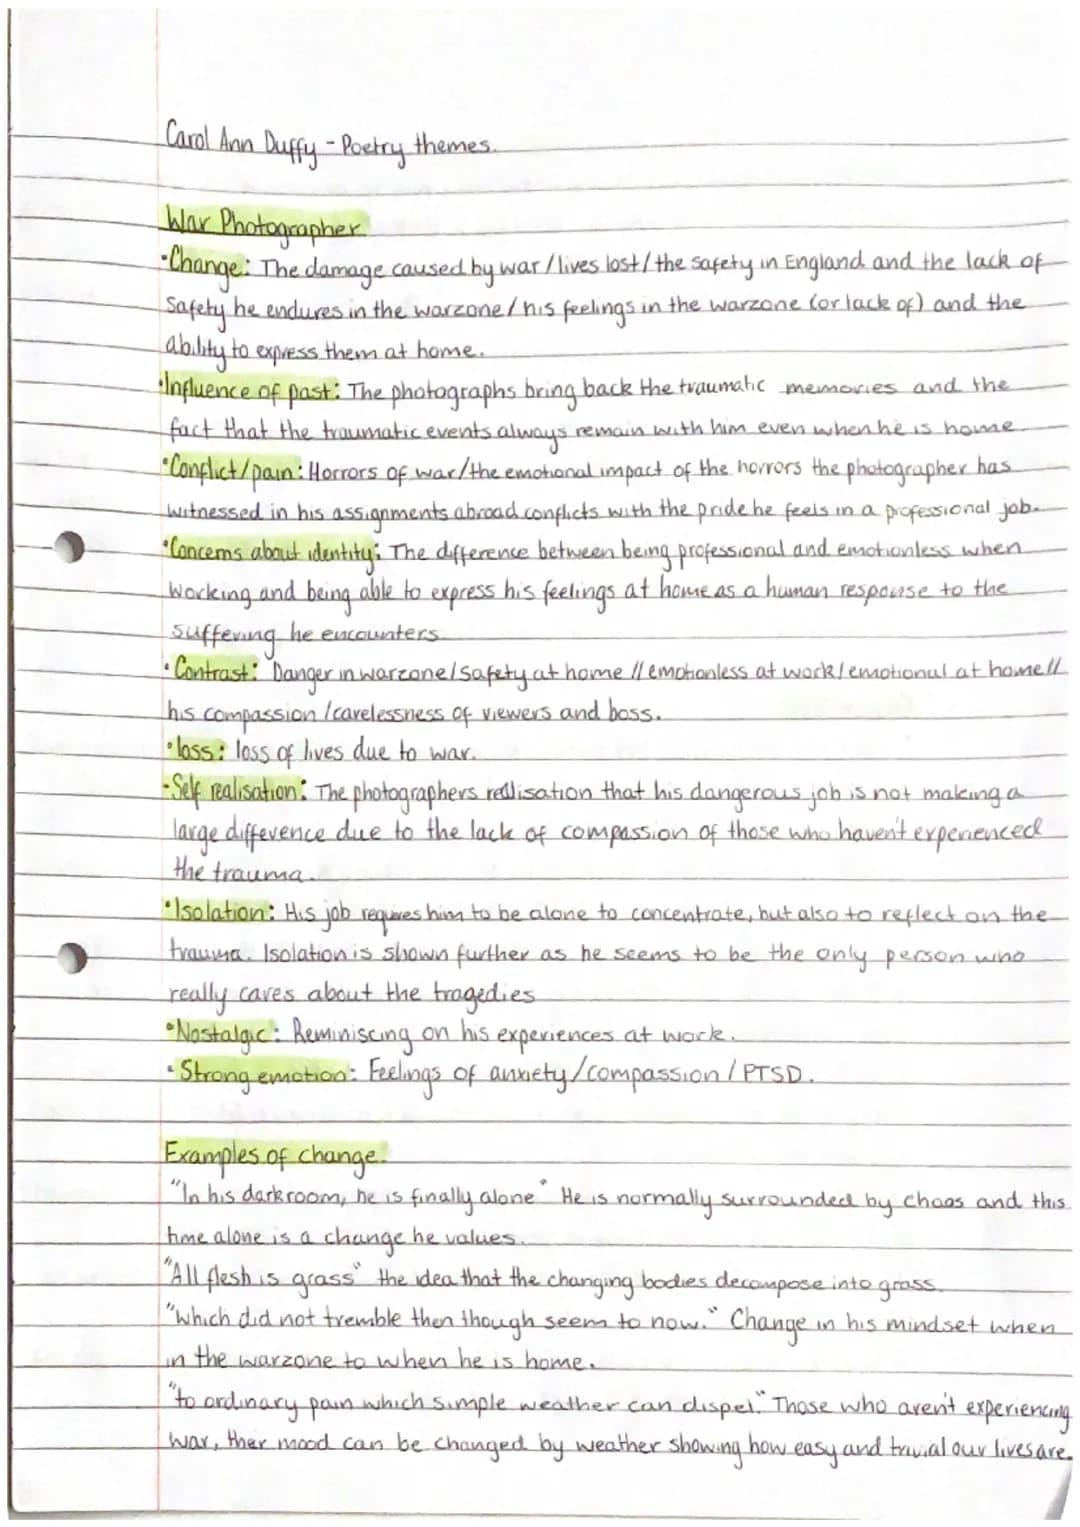 Carol Ann Duffy - Poetry themes.
War Photographer
•Change: The damage caused by war/lives lost/the safety in England and the lack of
safety he endures in the warzone/his feelings in the warzone (or lack of) and the
ability to express them at home.
•Influence of past: The photographs bring back the traumatic memories and the
fact that the traumatic events always remain with him even when he is home.
•Conflict/pain: Horrors of war/the emotional impact of the horrors the photographer has
witnessed in his assignments abroad conflicts with the pride he feels in a professional job.
•Concerns about identity: The difference between being professional and emotionless when
working and being able to express his feelings at home as a human response to the
suffering he encounters
•Contrast: Danger in warzone/safety at home // emotionless at work/emotional at home//
his compassion/carelessness of viewers and boss.
•loss: loss of lives due to war.
•Self realisation: The photographers realisation that his dangerous job is not making a
large difference due to the lack of compassion of those who haven't experienced
the trauma.
•Isolation: His job requires him to be alone to concentrate, but also to reflect on the
trauma. Isolation is shown further as he seems to be the only person who
really cares about the tragedies
•Nostalgic: Reminiscing on his experiences at work.
•Strong emotion: Feelings of anxiety/compassion/PTSD.
Examples of change.
"In his darkroom, he is finally alone" He is normally surrounded by chaos and this
time alone is a change he values.
"All flesh is grass" the idea that the changing bodies decompose into grass.
"Which did not tremble then though seem to now." Change in his mindset when
in the warzone to when he is home.
"to ordinary pain which simple weather can dispel." Those who aren't experiencing
war, ther mood can be changed by weather showing how easy and trivial our lives are.